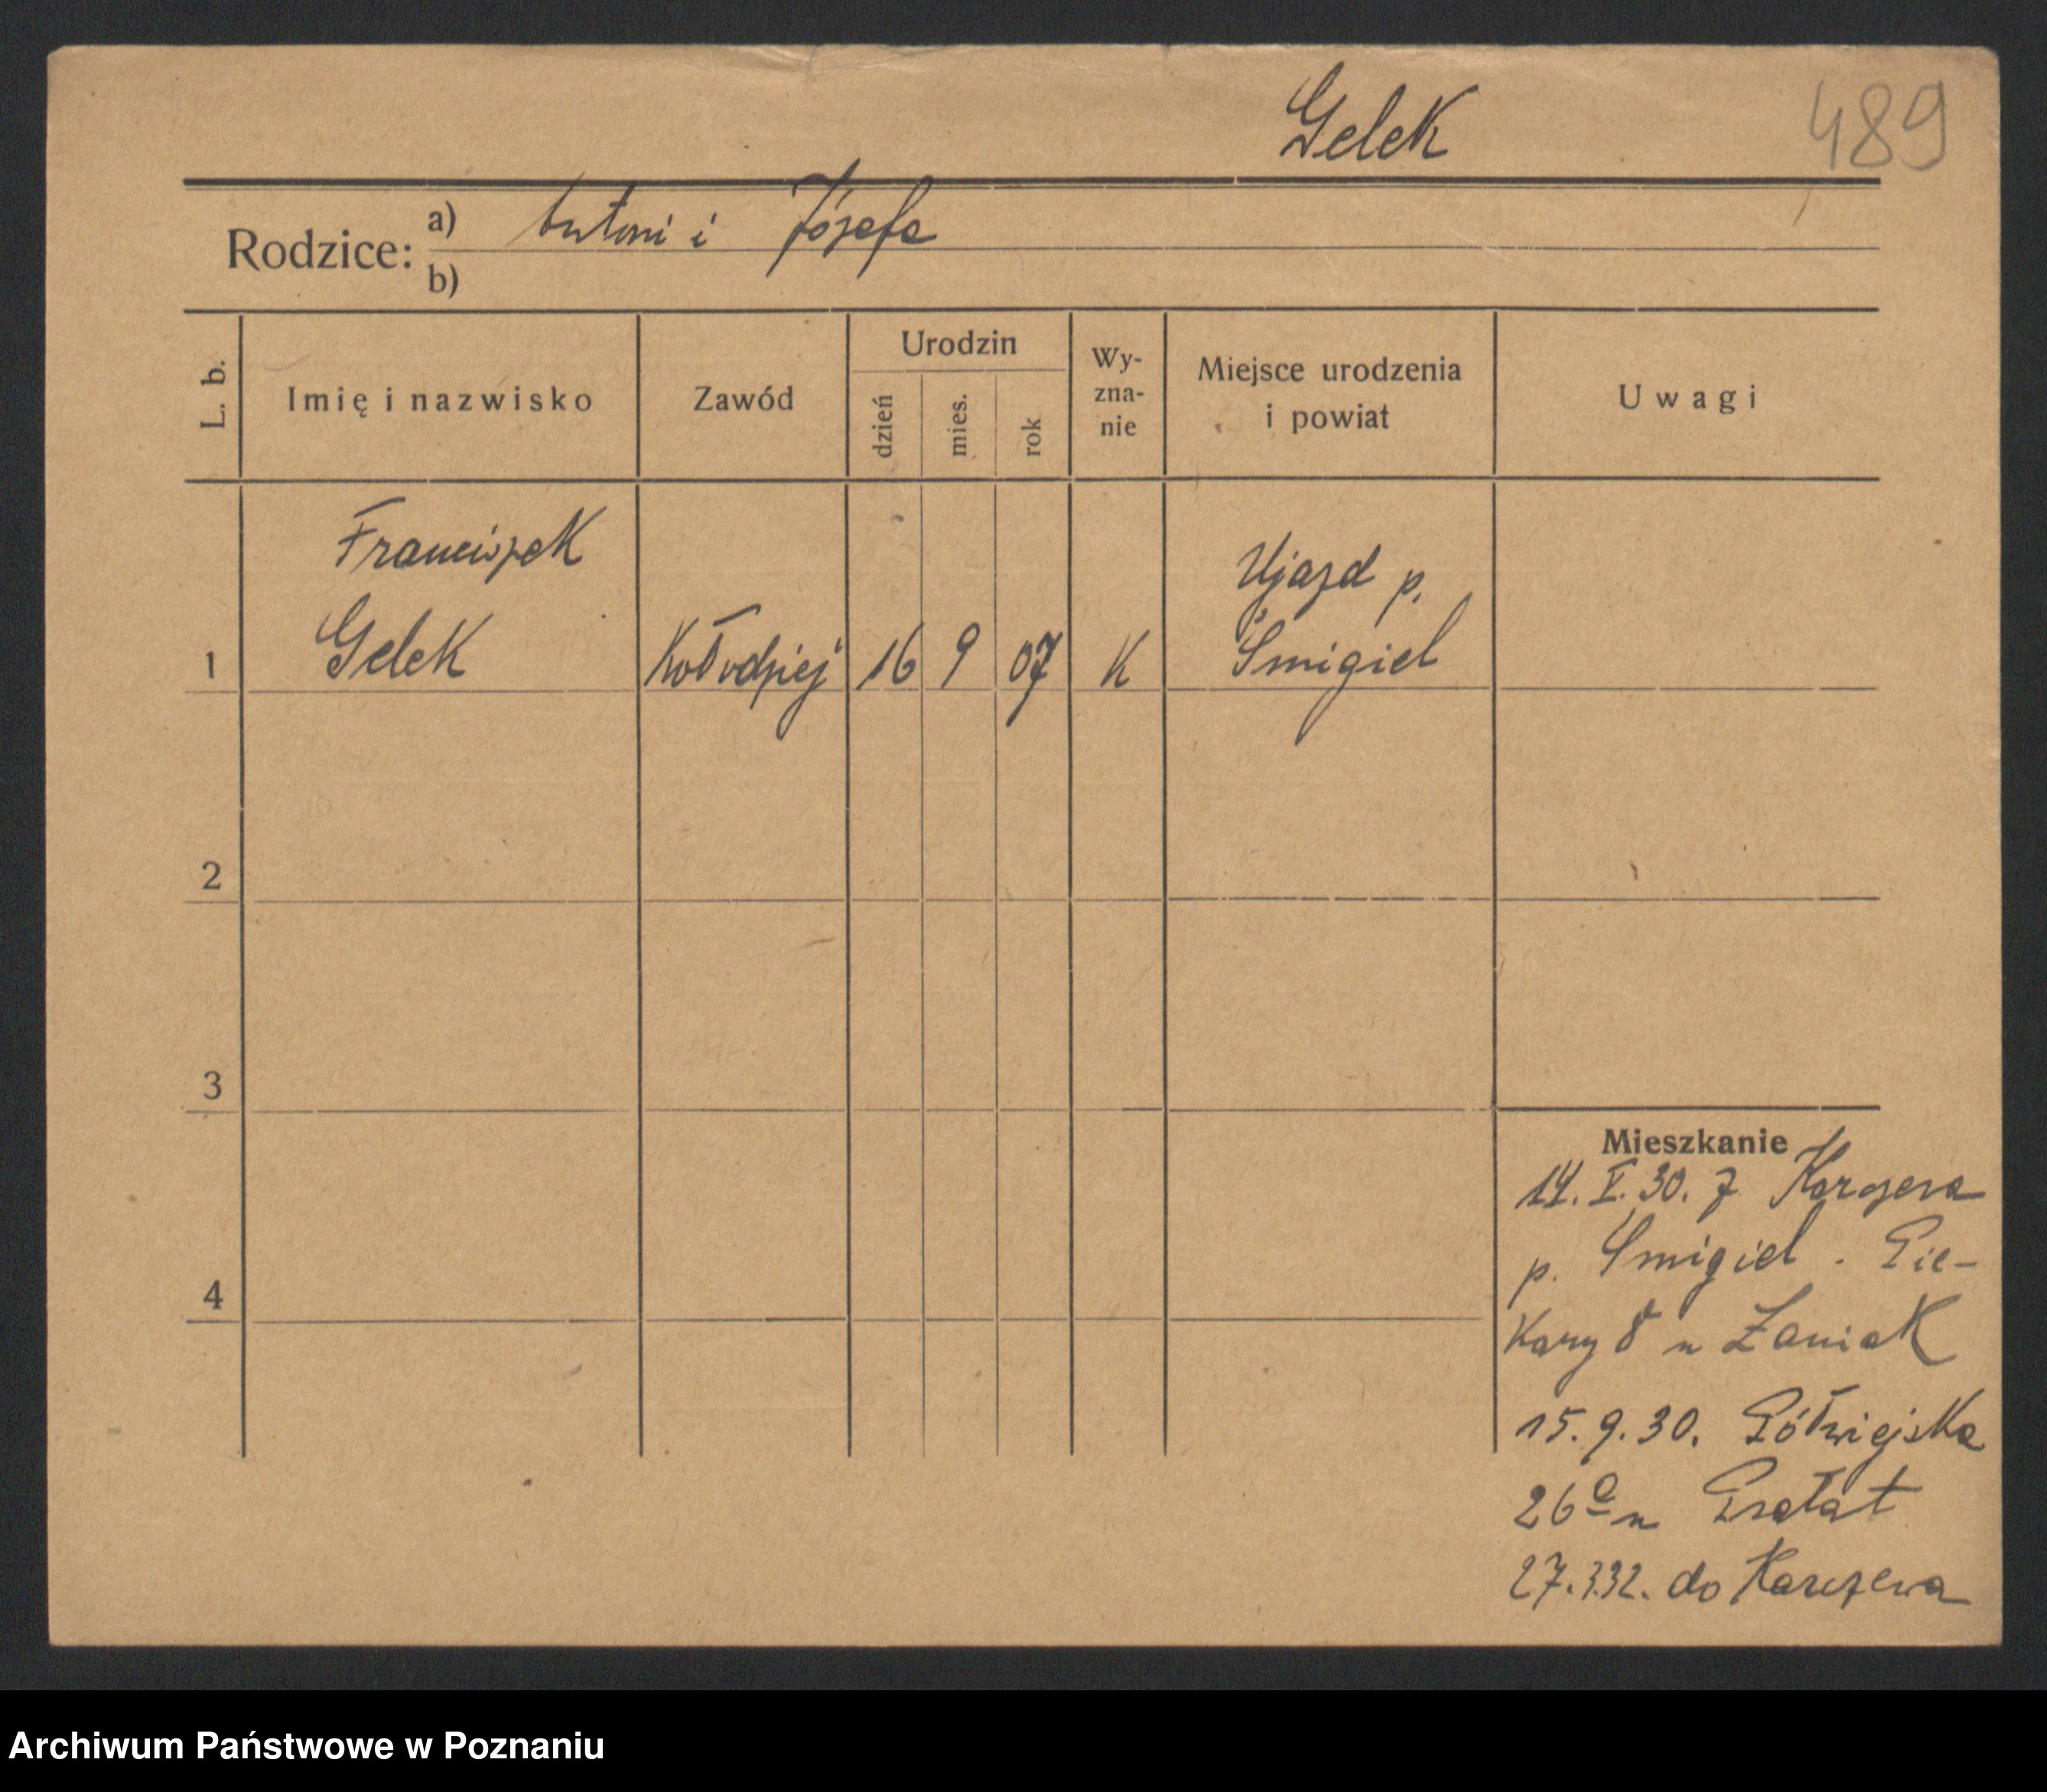 Gelek
489
Rodzice: a) Antoni i Józefa
b)
L. b.
Imię i nazwisko
Zawód
Urodzin
dzień
mies.
rok
Wy-
zna-
nie
Miejsce urodzenia
i powiat
Uwagi
Franciszek
Ujazd p.
1 Gelek Kołodziej 16 9 07 K Śmigiel
2
3
4
Mieszkanie
14. V. 30. z
p. Śmigiel. Pie-
kary 8 u Żaniak
15.9.30. Półwiejska
26a u Prałat
27.3.32. do Karczewa
Archiwum Państwowe w Poznaniu